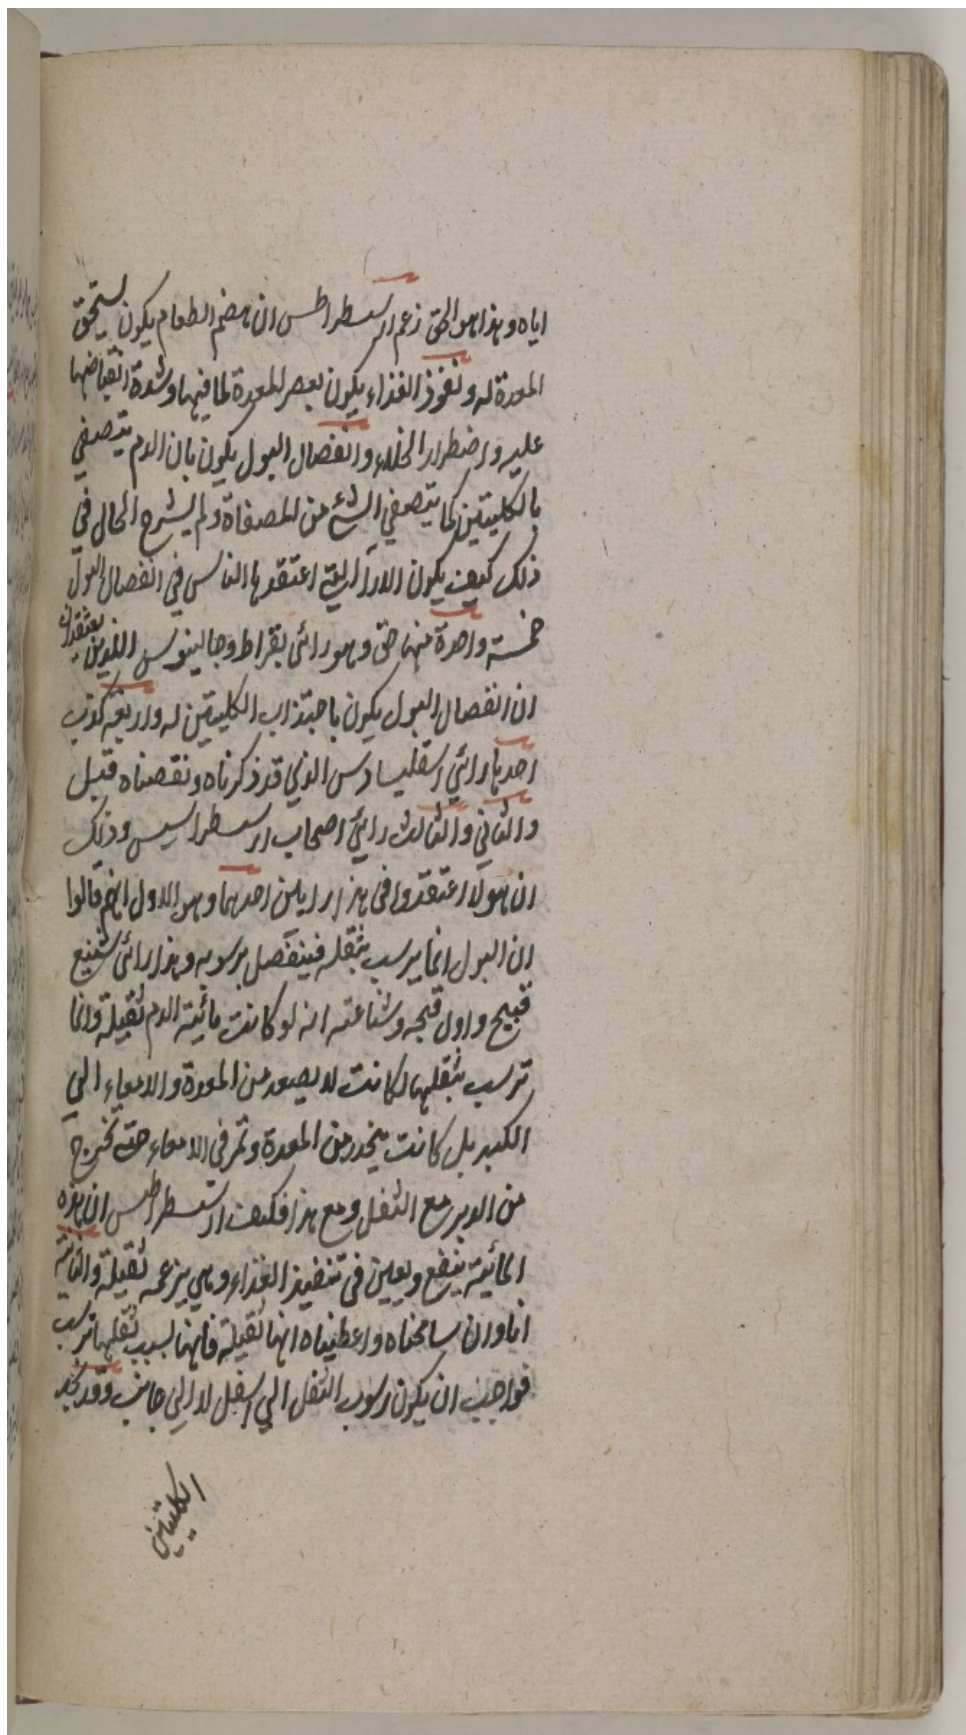 اياه وهذا هو الحق زعم ارسطراطس ان هضم الطعام يكون بسحق
المعدة له ونفوذ الغذاء يكون بعصر المعدة لما فيها وشدة انقباضها
عليه واضطرار الخلاء وانفصال البول يكون بان الدم يتصفي
بالكليتين كما يتصفي الشئ من المصفاة ولم يشرح الحال في
ذلك كيف يكون الارآ التي اعتقدها الناس في انفصال البول
خمسة واحدة منها حق وهو رائ بقراط وجالينوس اللذين يعتقدان
ان انفصال البول يكون باجتذاب الكليتين له واربعة كذب
احدها رائي اسقليبادس الذي قد ذكرناه ونقضناه قبل
والثاني والثالث رائي اصحاب ارسطراسيس وذلك
ان هولا اعتقدوا في هذا رايين احدهما وهو الاول انهم قالوا
ان البول انما يرسب بثقله فينفصل برسوبه وهذا رائ شنيع
قبيح واول قبحه وشناعته انه لو كانت مائية الدم ثقيلة وانما
ترسب بثقلها لكانت لا يصعد من المعدة والامعاء الي
الكبد بل كانت ينحدر من المعدة وتمر في الامعاء حتي تخرج
من الدبر مع الثفل ومع هذا فكيف ارسطراطس ان هذه
المائية ينفع ويعين في تنفيذ الغذاء وهي بزعمه ثقيلة والثانية
انا وان سامحناه واعطيناه انها ثقيلة فانها لسبب ثقلها ترسب
فواجب ان يكون رسوب الثفل الي اسفل لا الي جانب وقد نجد
الكليتين